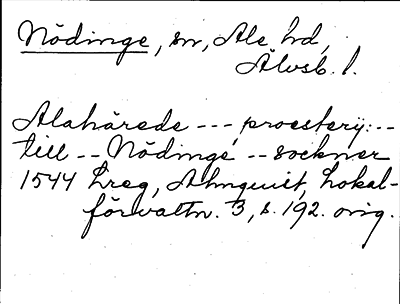 Nödinge, sn, Ale hd,
Älvsb. l.
Alahärede --- proesterij:--
till -- Nödinge -- sockner
1544 Lreg, Almquist, Lokal-
förvaltn. 3, s. 192. orig.